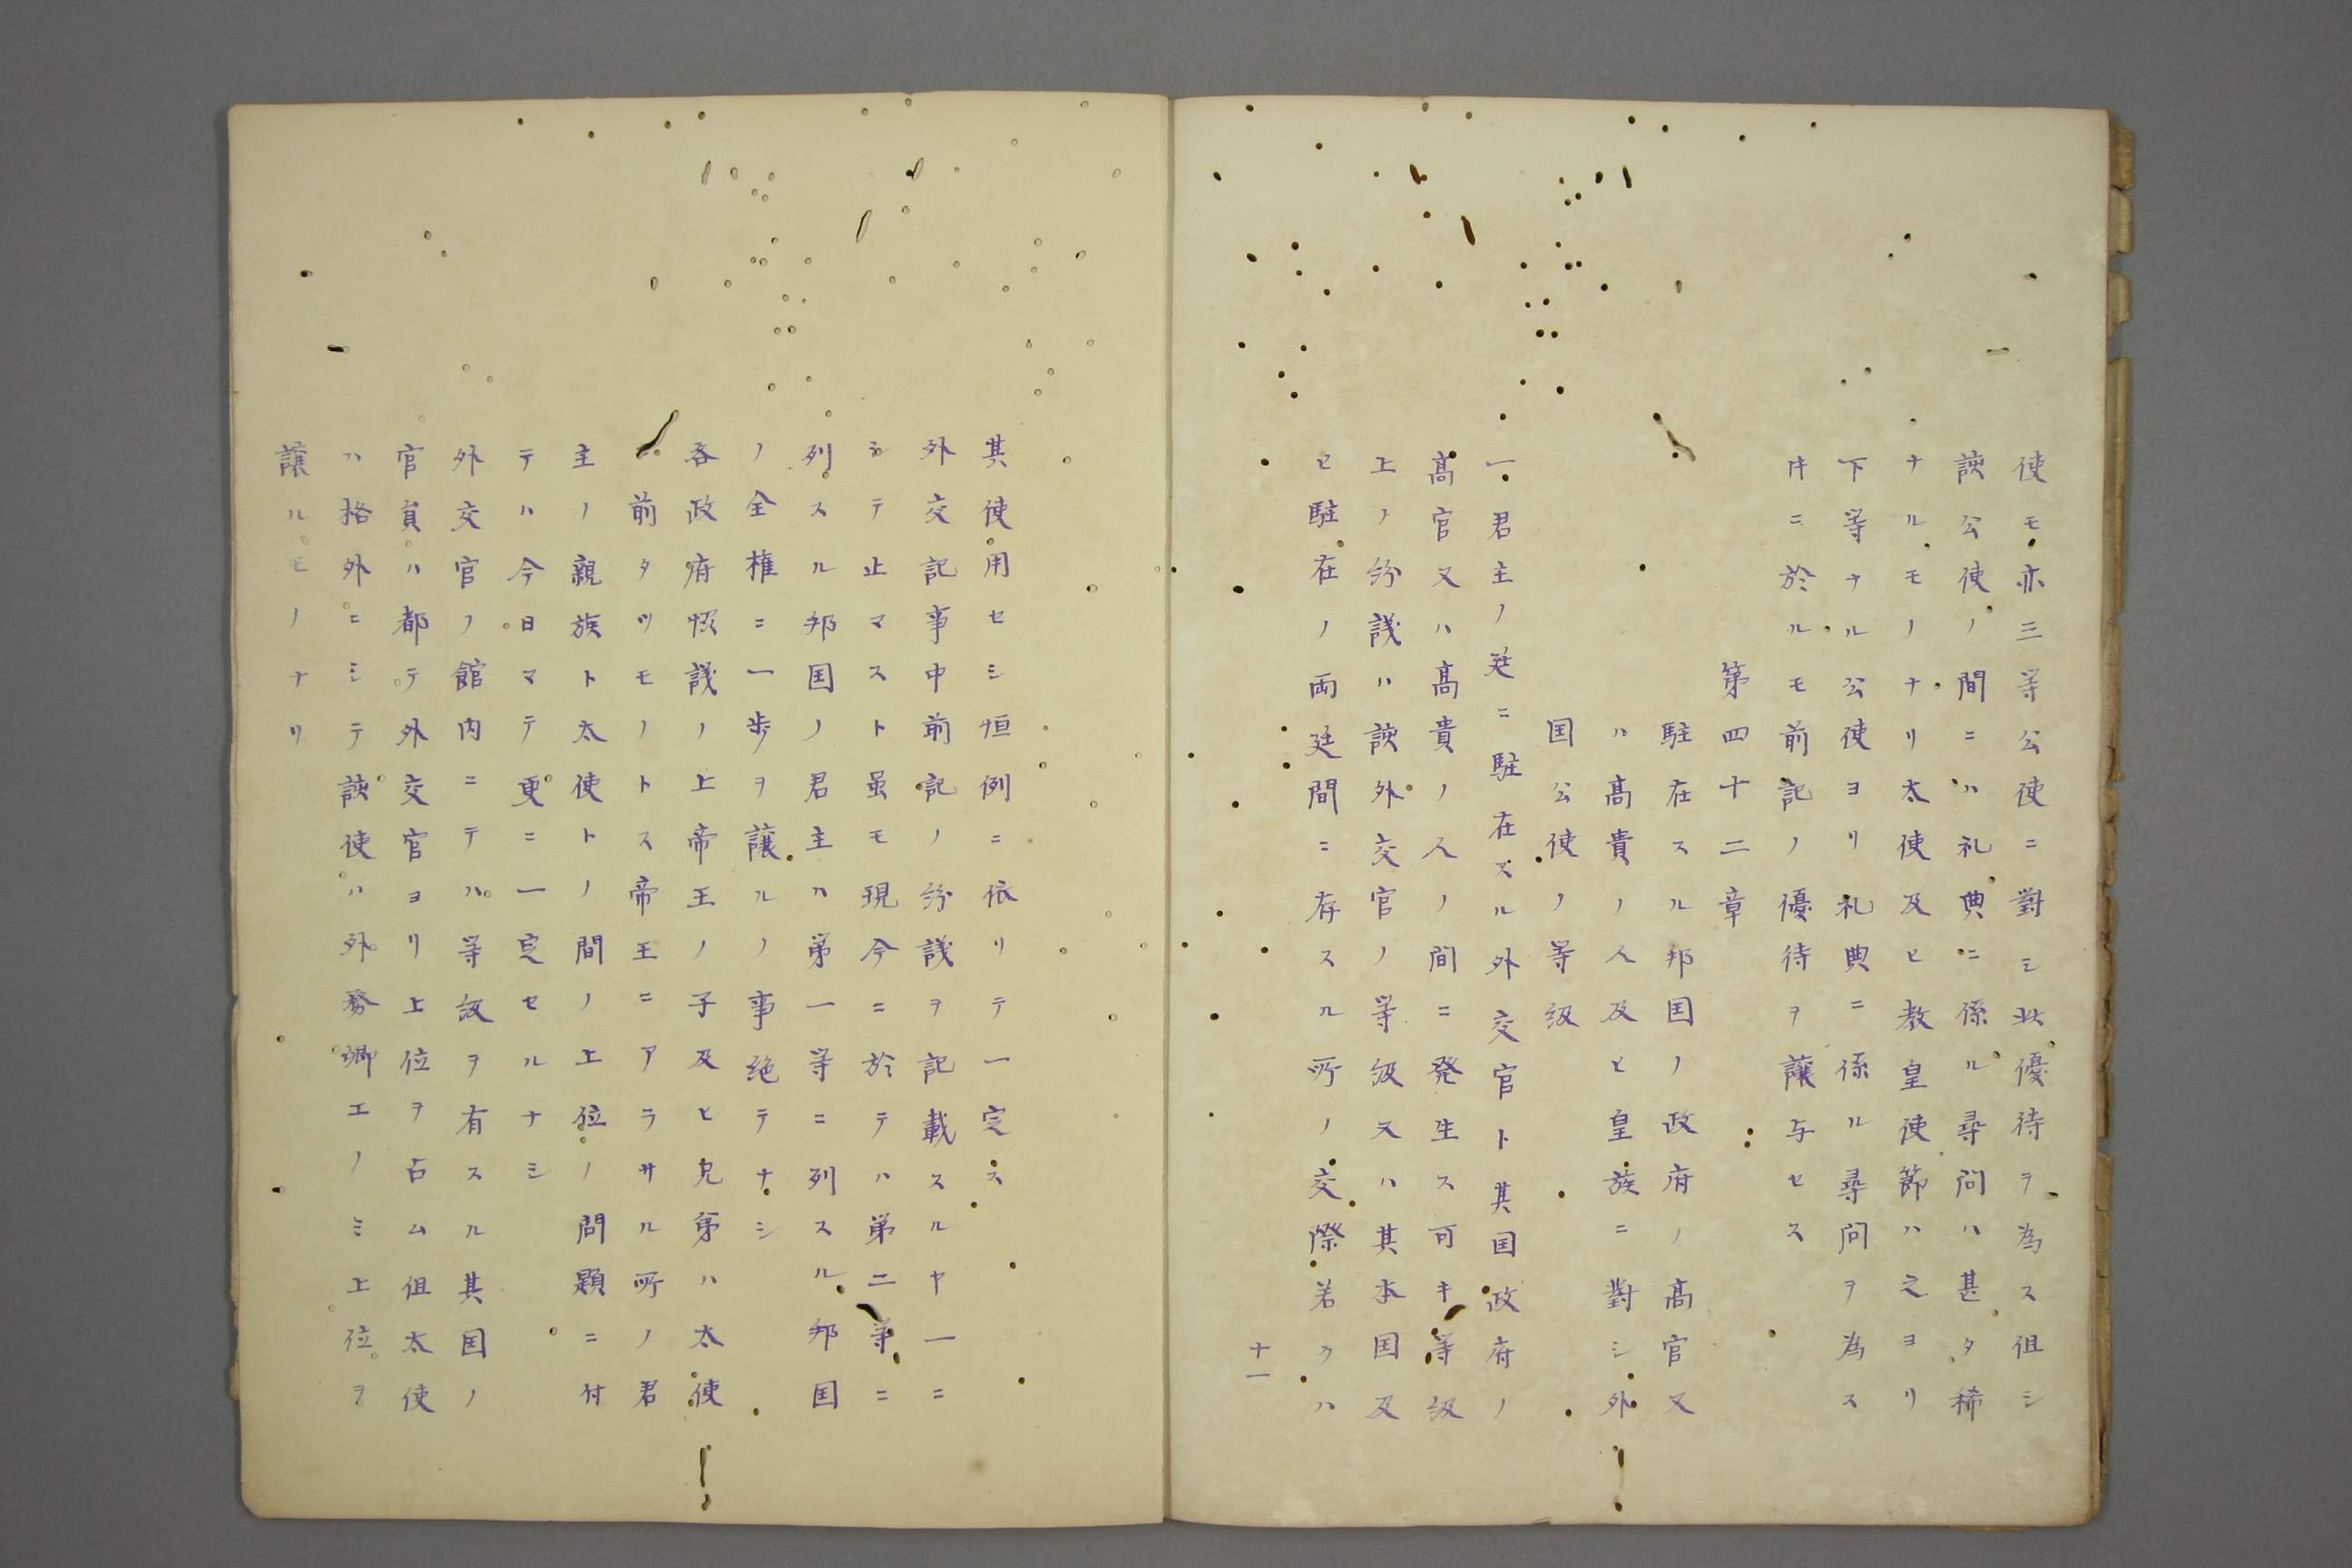 使モ亦三等公使ニ對シ此優待ヲ為ス但シ
該公使ノ間ニハ礼典ニ係ル尋問ハ甚タ稀
ナルモノナリ太使及ヒ教皇使節ハ之ヨリ
下等ナル公使ヨリ礼典ニ係ル尋問ヲ為ス
片ニ於ルモ前記ノ優待ヲ譲与セス
第四十二章
駐在スル邦国ノ政府ノ高官又
ハ高貴ノ人及ヒ皇族ニ對シ外
国公使ノ等級
一君主ノ廷ニ駐在スル外交官ト其国政府ノ
高官又ハ高貴ノ人ノ間ニ発生ス可キ等級
上ノ紛議ハ該外交官ノ等級又ハ其本国及
ヒ駐在ノ両廷間ニ存スル所ノ交際若クハ
十一
其使用セシ恒例ニ依リテ一定ス
外交記事中前記ノ紛議ヲ記載スルヤ一ニ
シテ止マスト虽モ現今ニ於テハ第二等ニ
列スル邦国ノ君主カ第一等ニ列スル邦国
ノ全権ニ一歩ヲ譲ルノ事絶テナシ
各政府恊議ノ上帝王ノ子及ヒ兄弟ハ太使
ノ前タツモノトス帝王ニアラサル所ノ君
主ノ親族ト太使トノ間ノ上位ノ問題ニ付
テハ今日マテ更ニ一定セルナシ
外交官ノ館内ニテハ等級ヲ有スル其国ノ
官員ハ都テ外交官ヨリ上位ヲ占ム但太使
ハ格外ニシテ該使ハ外務卿エノミ上位ヲ
譲ルモノナリ